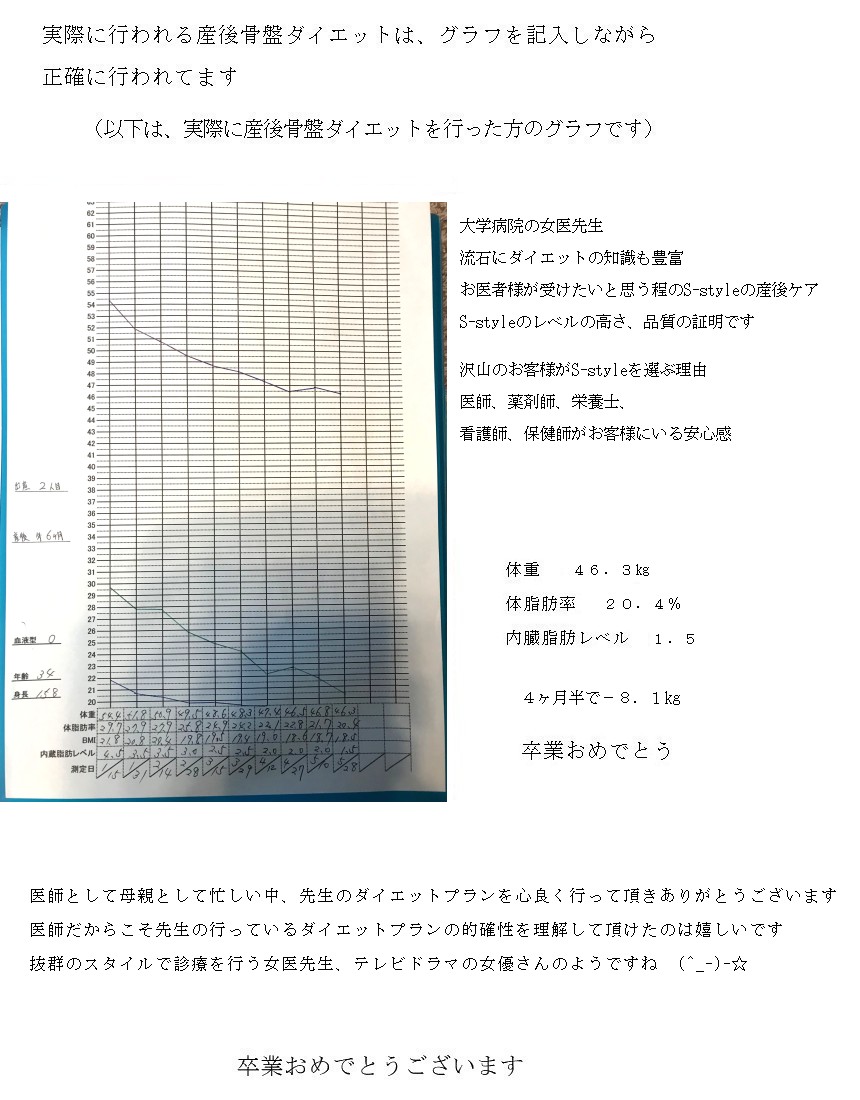 実際に行われる産後骨盤ダイエットは、グラフを記入しながら
正確に行われてます
（以下は、実際に産後骨盤ダイエットを行った方のグラフです）
大学病院の女医先生
流石にダイエットの知識も豊富
お医者様が受けたいと思う程のS-styleの産後ケア
S-styleのレベルの高さ、品質の証明です
沢山のお客様がS-styleを選ぶ理由
医師、薬剤師、栄養士、
看護師、保健師がお客様にいる安心感
62
61
60
59
58
57
56
55
54
53
52
51
50
49
48
47
46
45
44
43
42
41
40
39
38
37
36
35
34
33
32
31
30
29
28
27
26
25
24
23
22
21
20
2人目
約6ヶ月
血液型 O
年齢 34
身長 158
体重 54.4 51.8 50.9 49.5 48.6 48.3 47.4 46.5 46.8 46.3
体脂肪率 29.7 27.9 27.9 25.8 24.9 24.2 22.1 22.8 21.7 20.4
BMI 21.8 20.8 20.4 19.8 19.5 19.4 19.0 18.6 18.7 18.5
内蔵脂肪レベル 4.5 3.5 3.5 3.0 2.5 2.5 2.0 2.0 2.0 1.5
測定日 1/15 1/31 2/14 2/28 3/15 3/29 4/12 4/27 5/10 5/28
体重　４６．３㎏
体脂肪率　２０．４％
内臓脂肪レベル　１．５
４ヶ月半で－８．１㎏
卒業おめでとう
医師として母親として忙しい中、先生のダイエットプランを心良く行って頂きありがとうございます
医師だからこそ先生の行っているダイエットプランの的確性を理解して頂けたのは嬉しいです
抜群のスタイルで診療を行う女医先生、テレビドラマの女優さんのようですね　(^_-)-☆
卒業おめでとうございます